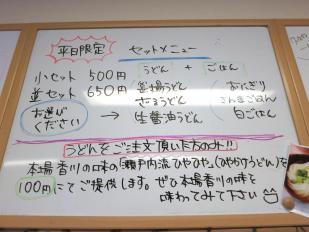 平日限定 セットメニュー
うどん + ごはん
小セット 500円
並セット 650円
お選びください →
釜揚うどん
ざるうどん
生醤油うどん
おにぎり
さんまごはん
白ごはん
うどんをご注文頂いた方のみ!!
本場香川の味の「瀬戸内流ひやひや」(ひやかけうどん)を
100円にてご提供します。ぜひ本場香川の味を
味わってみて下さい